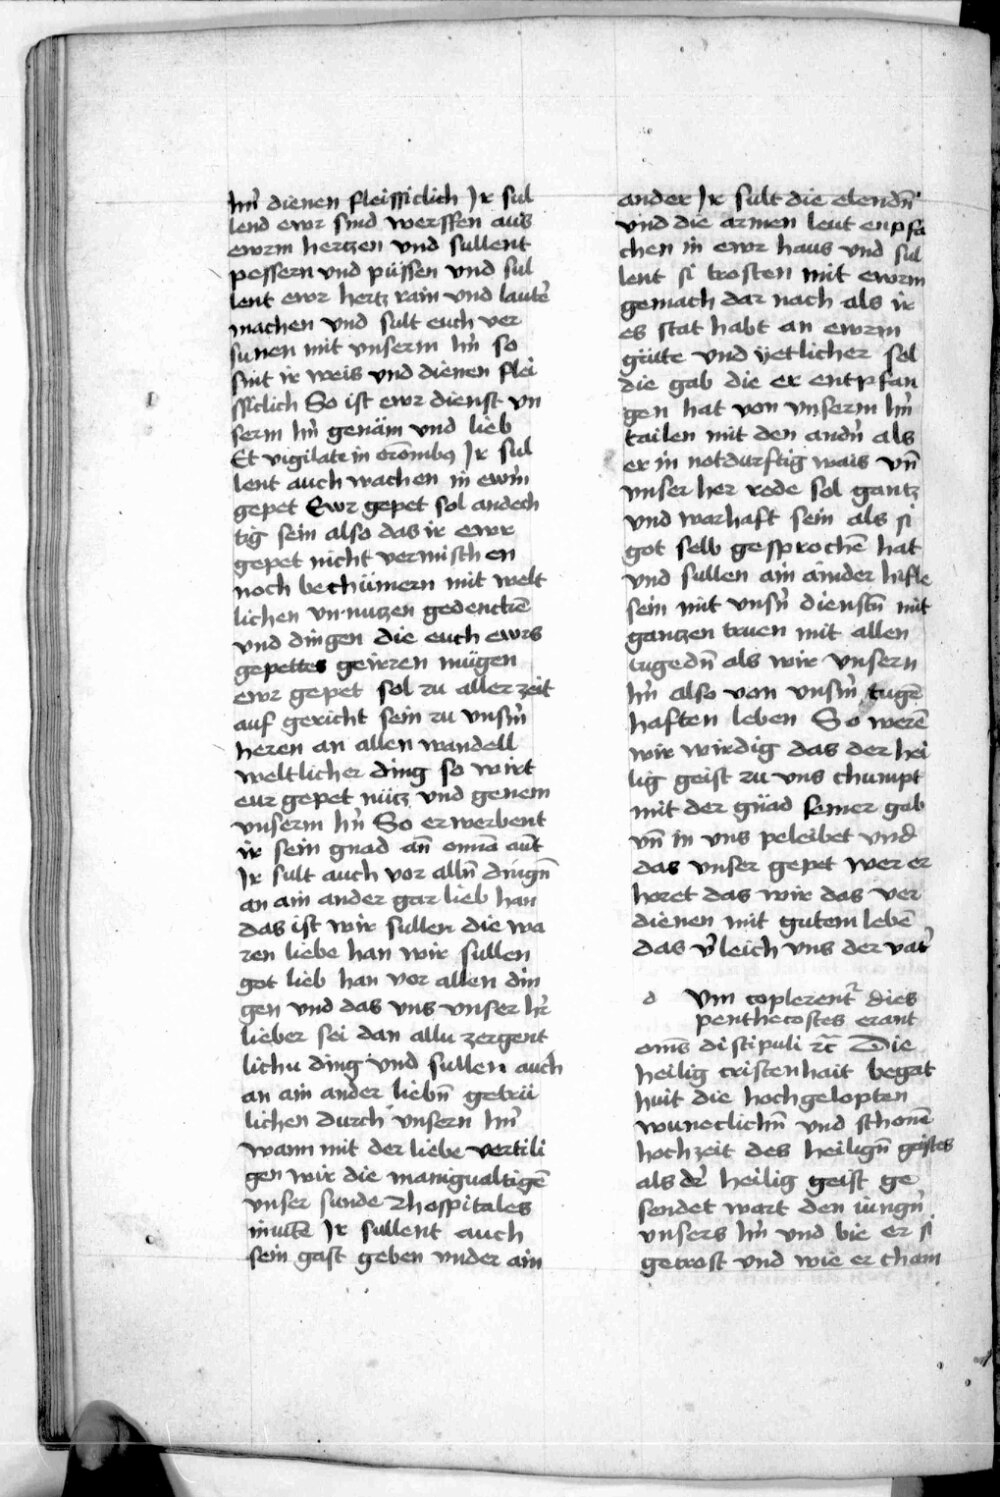 hn̄ dienen fleissiclich Ir sul
lend ewr sind werffen aus
ewrm hertzen vnd sullent
pessern vnd püssen vnd sul
lent ewr hertz rain vnd lautē
machen vnd sult euch ver
sunen mit vnserm hn̄ so
sint ir weis vnd dienen flei
ssiclich So ist ewr dienst vn
serm hn̄ genäm vnd lieb
Et vigilate in orōnibus Ir sul
lent auch wachen in ewm̄
gepet Ewr gepet sol andech
tig sein also das ir ewr
gepet nicht vermischen
noch bechümern mit welt
lichen vn nutzen gedenckē
vnd dingen die euch ewrs
gepettes geirren mügen
ewr gepet sol zu aller zeit
auf gericht sein zu vnsm̄
heren an allen wandell
weltlicher ding so wirt
eur gepet nütz vnd genem
vnserm hn̄ So erwerbent
ir sein gnad an̄ omnia aut̄
Ir sult auch vor alln̄ dingn̄
an ain ander gar lieb han
das ist wir sullen die wa
ren liebe han wir sullen
got lieb han vor allen din
gen vnd das vns vnser hr̄
lieber sei dan allu zergent
lichu ding vnd sullen auch
an ain ander liebn̄ getrü
lichen durch vnsern hn̄
wann mit der liebe vertili
gen wir die manigualtigē
vnser sunde Zhospitales
inuicē Ir sullent auch
sein gast geben vnder ain
ander Ir sult die elendn̄
vnd die armen leut enpfa
chen in ewr haus vnd sul
lent si trosten mit ewrm
gemach dar nach als ir
es stat habt an ewrm
gütte vnd yetlicher sol
die gab die er entpfan
gen hat von vnserm hn̄
tailen mit den andn̄ als
er in notdurftig wais vn̄
vnser her rede sol gantz
vnd warhaft sein als si
got selb gesprochē hat
vnd sullen ain ainder hifle
sein mit vnsn̄ dienstn̄ mit
gantzen truen mit allen
tugedn̄ als wir vnsern
hn̄ also von vnsm̄ tugē
haften leben So werē
wir wirdig das der hei
lig geist zu vns chumpt
mit der gnad seiner gab
vn̄ in vns peleibet vnd
das vnser gepet wer er
horet das wir das ver
dienen mit gutem lebē
das v̄leich vns der vat̄
d Vm coplerent̄ dies
penthecostes erant
oms̄ discipuli zc̄ Die
heilig cristenhait begat
huit die hochgelopten
wuneclichn̄ vnd schonē
hochzeit des heilign̄ geistes
als dr̄ heilig geist ge
sendet wart den iungn̄
vnsers hn̄ vnd bie er si
getrost vnd wie er cham